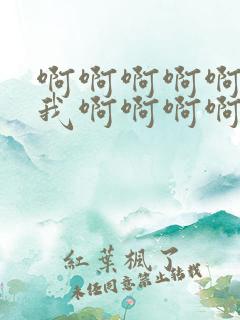 啊啊啊啊啊
我啊啊啊啊
紅葉楓了
未經同意禁止轉載